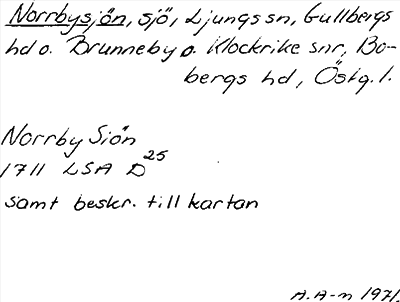 Norrbysjön, sjö, Ljungs sn, Gullbergs
hd o. Brunneby o. Klockrike snr, Bo-
bergs hd, Östg. l.
Norrby Siön
1711 LSA D25
samt beskr. till kartan
A. A-m 1971.